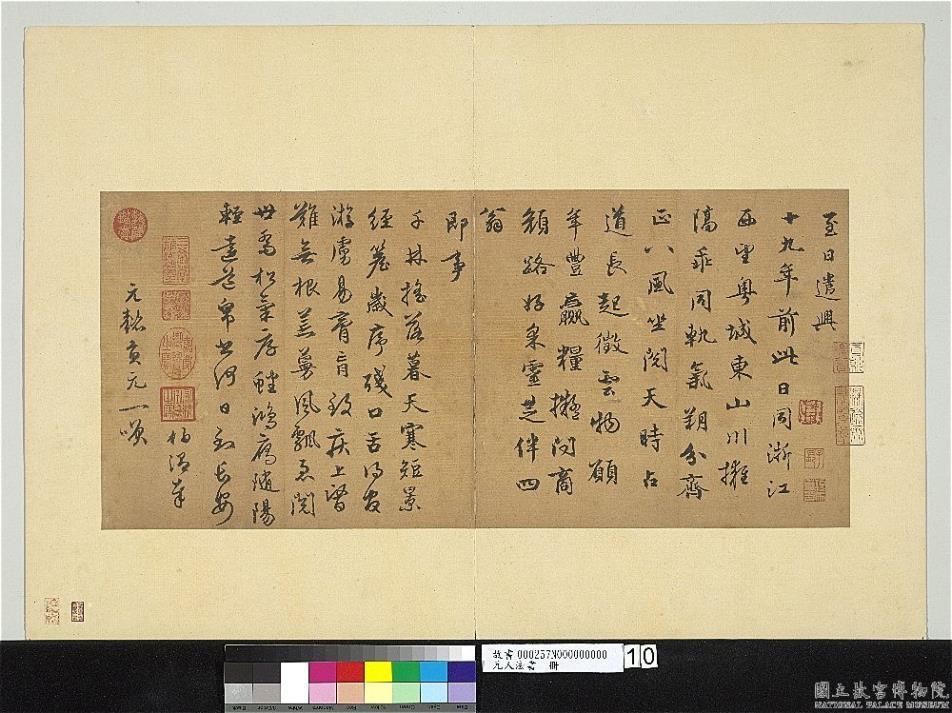 至日遣興
十九年前此日同浙江
西望粵城東山川擁
隔乖同軌氣朔分齊
正八風坐閱天時占
道長起徵雲物願
年豐贏糧擬問商
顏路好采靈芝伴四
翁
即事
千林搖落暮天寒短景
經簷歲序殘口舌得官
游虜易膏肓致疾上醫
難無根蔓風飄忽閱
世喬松氣鴻雁隨陽
輕遠帛書何日到長安
伯溫奉
元貞元一笑
故書000257N000000000
元人法書 冊
10
國立故宮博物院
NATIONAL PALACE MUSEUM